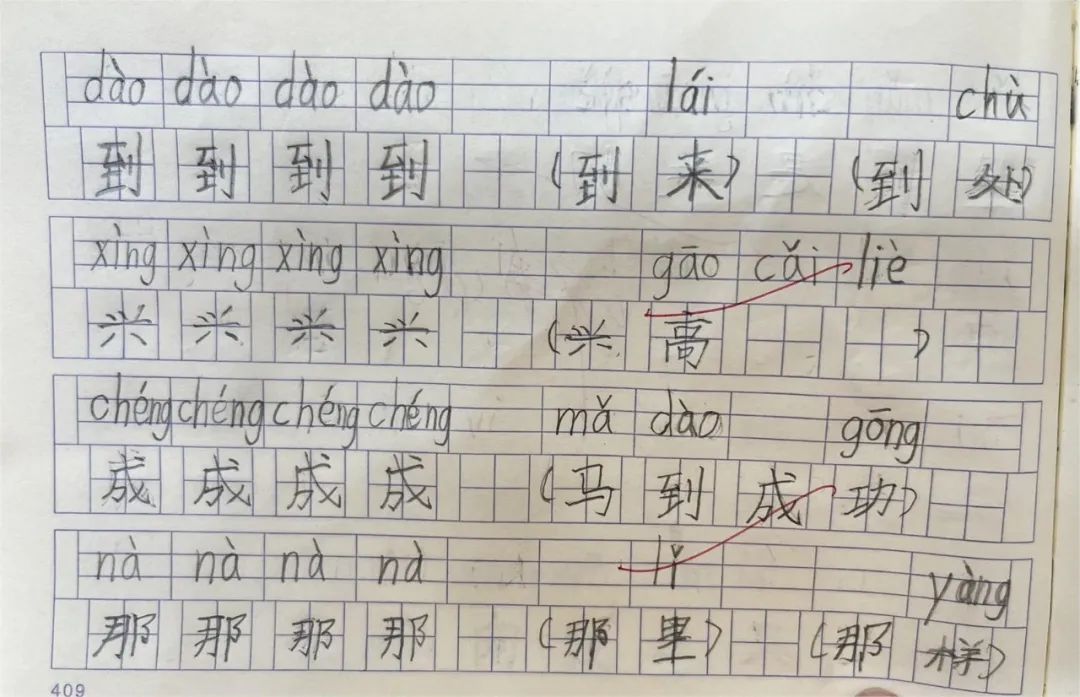 dào dào dào dào lái chù
到 到 到 到 (到 来) (到 处)
xìng xìng xìng xìng gāo cǎi liè
兴 兴 兴 兴 (兴 高 )
chéng chéng chéng chéng mǎ dào gōng
成 成 成 成 (马 到 成 功)
nà nà nà nà lǐ yàng
那 那 那 那 (那 里) (那 样)
409